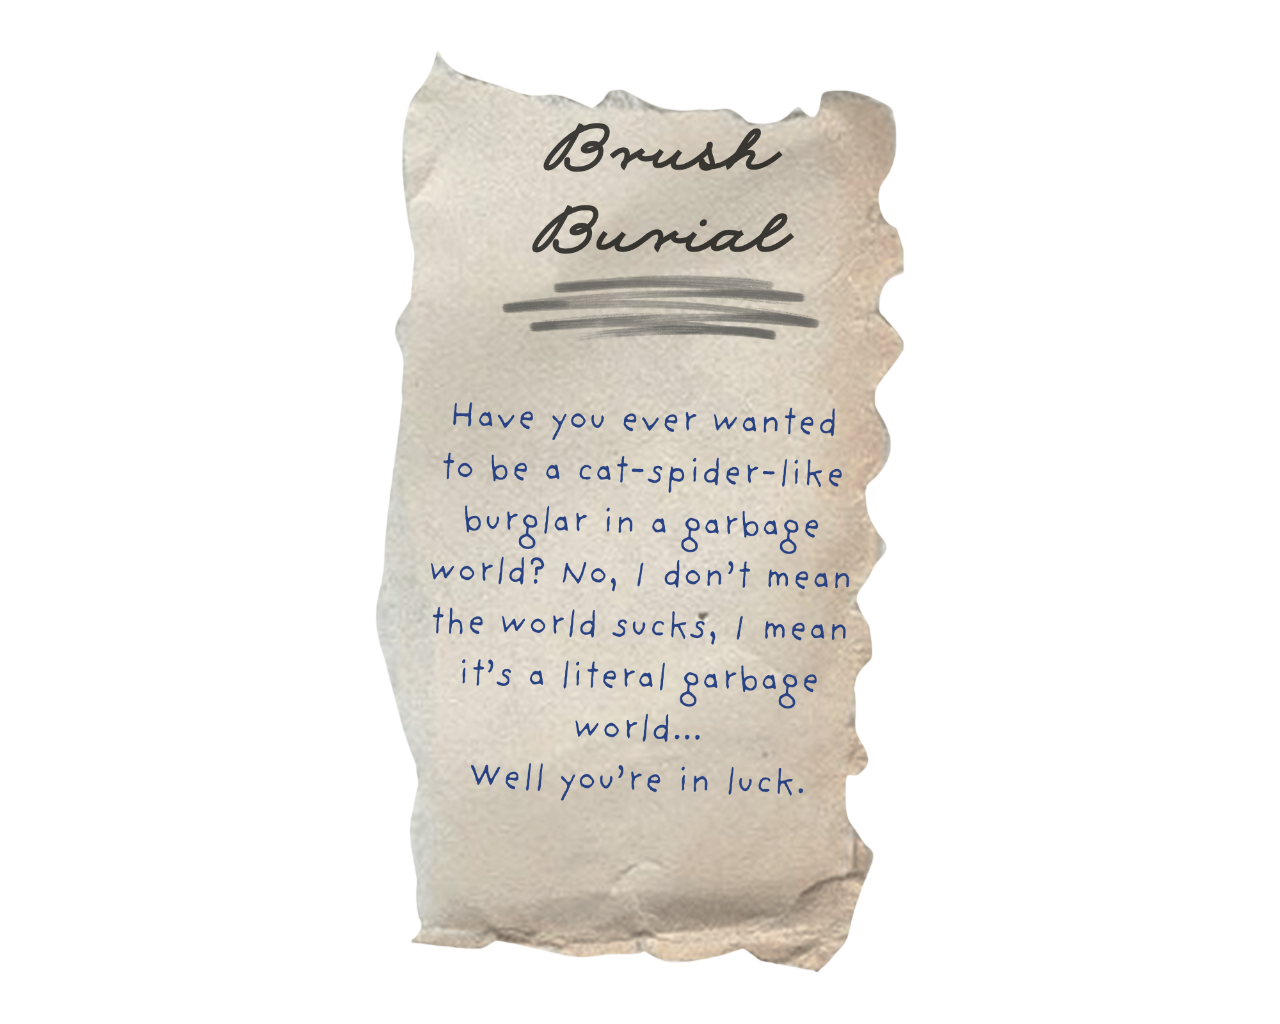 Brush
Burial
Have you ever wanted
to be a cat-spider-like
burglar in a garbage
world? No, I don't mean
the world sucks, I mean
it's a literal garbage
world...
Well you're in luck.